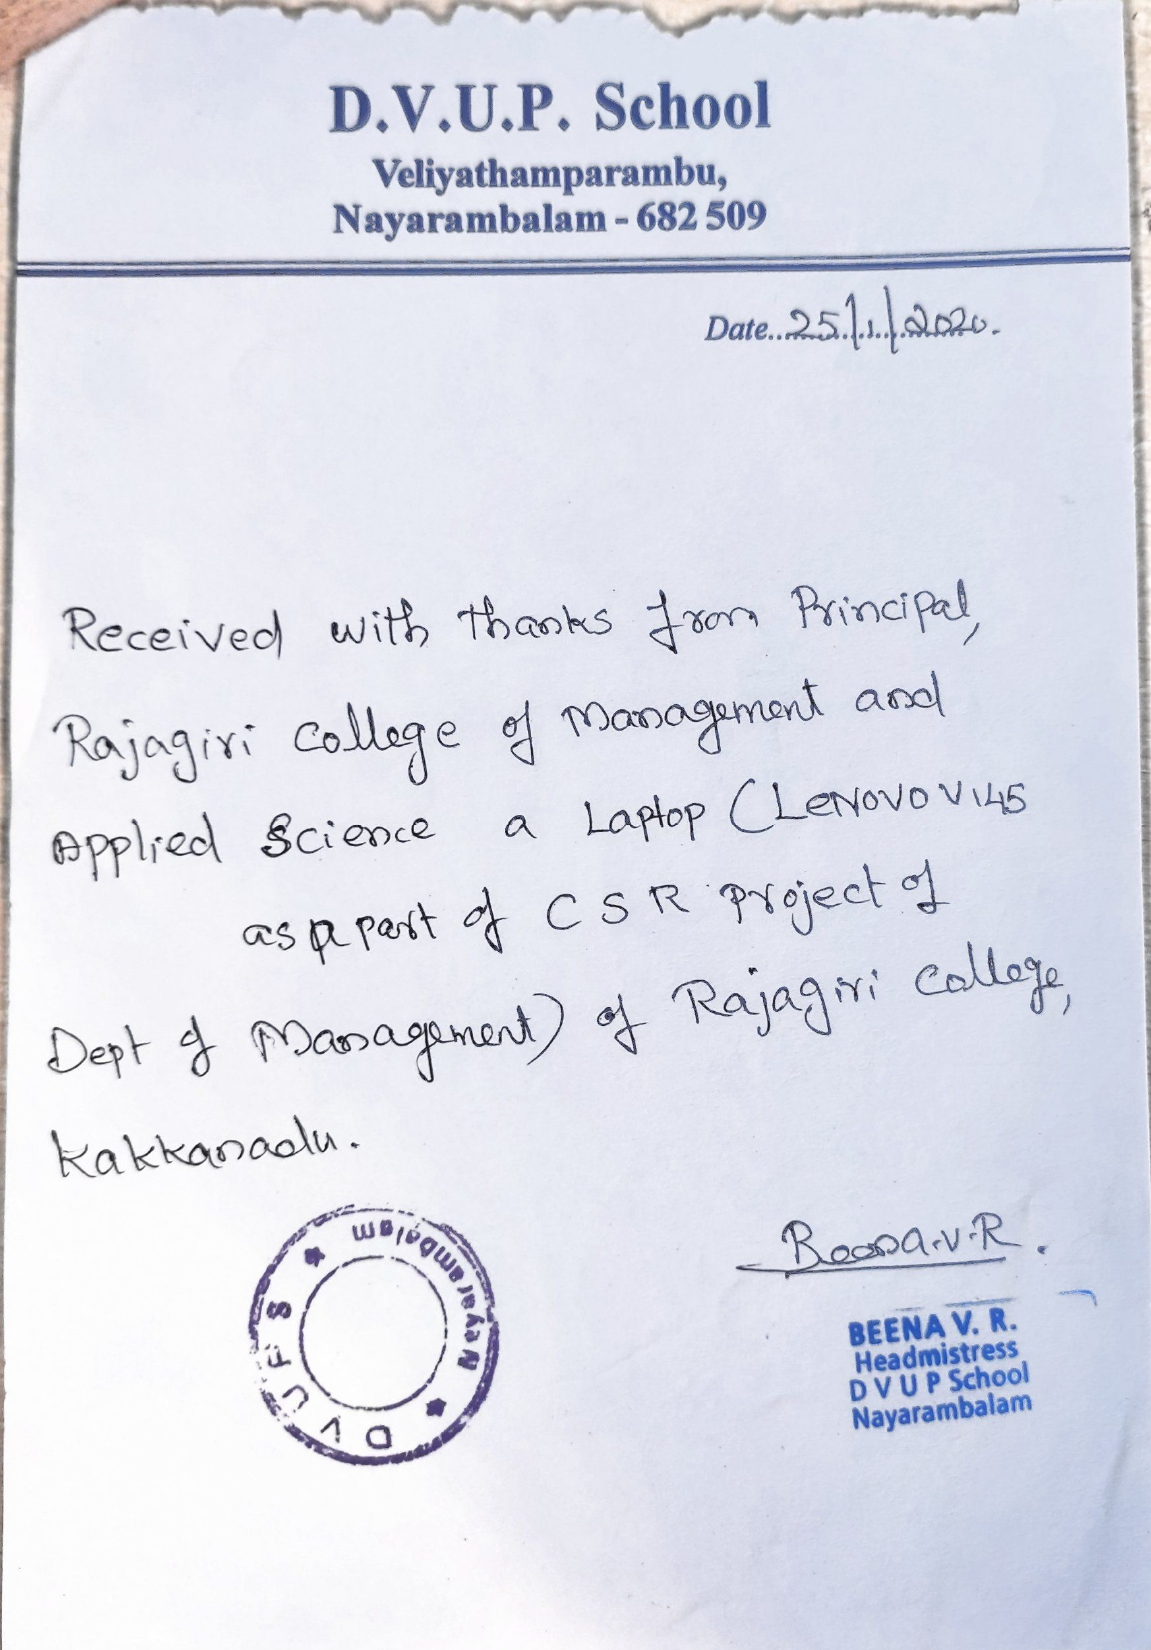 D.V.U.P. School
Veliyathamparambu,
Nayarambalam - 682 509
Date..25/1/2020.
Received with thanks from Principal,
Rajagiri college of Management and
Applied Science a Laptop (LENOVO V145
as a part of CSR project of
Dept of Management) of Rajagiri College,
Kakkanadu.
Beena.V.R.
BEENA V. R.
Headmistress
D V U P School
Nayarambalam
D V U P S ★ Nayarambalam ★